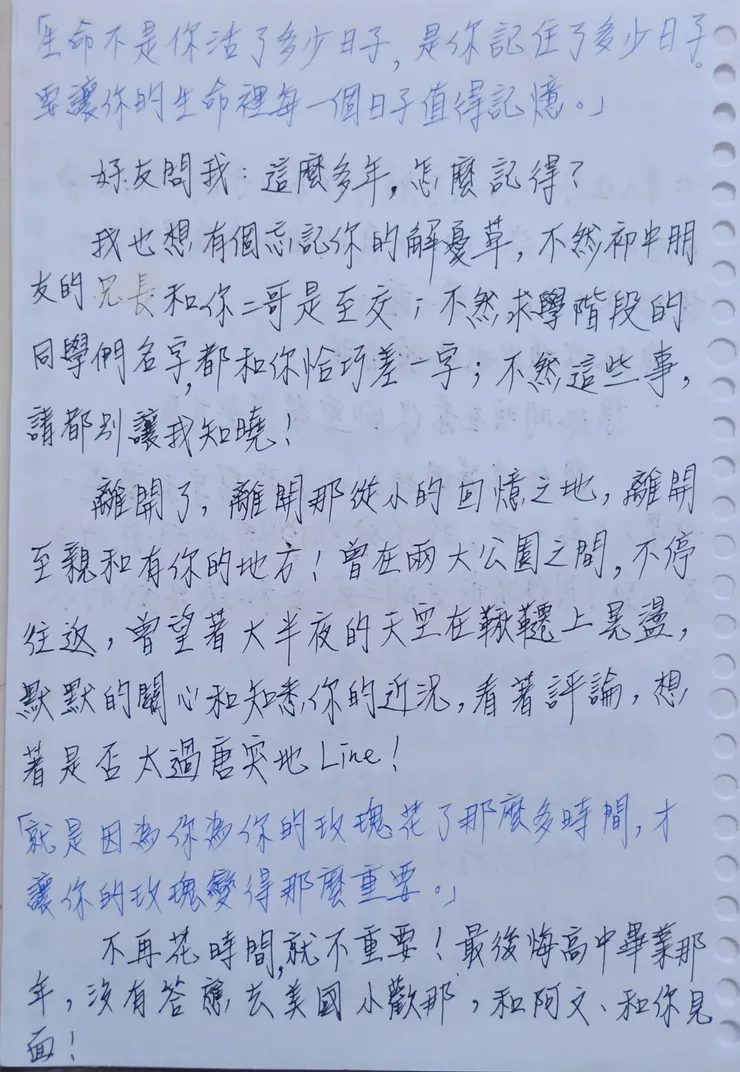 「生命不是你活了多少日子，是你記住了多少日子。
要讓你的生命裡每一個日子值得記憶。」
好友問我：這麼多年，怎麼記得？
我也想有個忘記你的解憂草，不然初中朋
友的兄長和你二哥是至交；不然求學階段的
同學們名字，都和你恰巧差一字；不然這些事，
請都別讓我知曉！
離開了，離開那從小的回憶之地，離開
至親和有你的地方！曾在兩大公園之間，不停
往返，曾望著大半夜的天空在鞦韆上晃盪，
默默的關心和知悉你的近況，看著評論，想
著是否太過唐突地Line！
「就是因為你為你的玫瑰花了那麼多時間，才
讓你的玫瑰變得那麼重要。」
不再花時間，就不重要！最後悔高中畢業那
年，沒有答應去美國小歡那，和阿文、和你見
面！